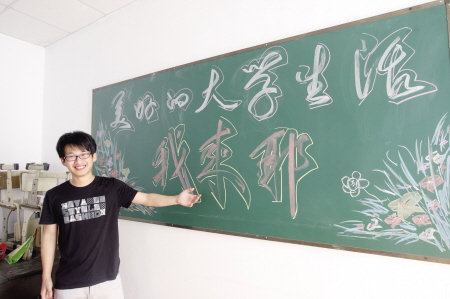 美好的大学生活
我来耶